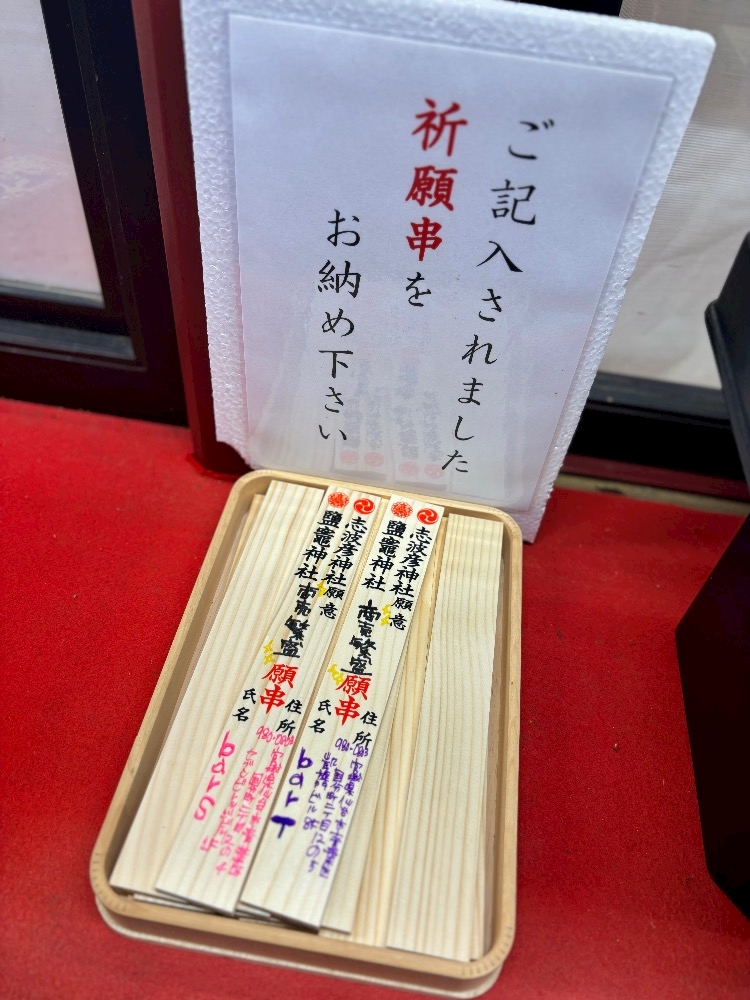 ご記入されました
祈願串を
お納め下さい
志波彦神社
鹽竈神社
願意
商売繁盛
願串
住所
氏名
980-0803
bar T
志波彦神社
鹽竈神社
願意
商売繁盛
願串
住所
氏名
bar S